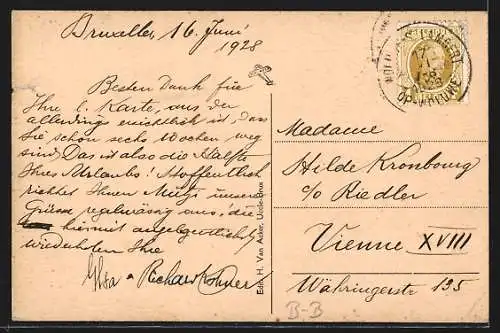 Bruxelles 16. Juni
1928
Besten Dank für
Ihre l. Karte, aus der
allerdings ersichtlich ist, dass
Sie schon sechs Wochen weg
sind. Das ist also die Hälfte
Ihres Urlaubs! Hoffentlich
richtet Ihnen Mitzi unsere
Grüsse regelmässig aus, die
hiermit
wiederholen Ihre
Richard
Edit. H. Van Acker, Uccle-Brux
Madame
Hilde Kronbourg
c/o Riedler
Vienne XVIII
Währingerstr 135
B-B